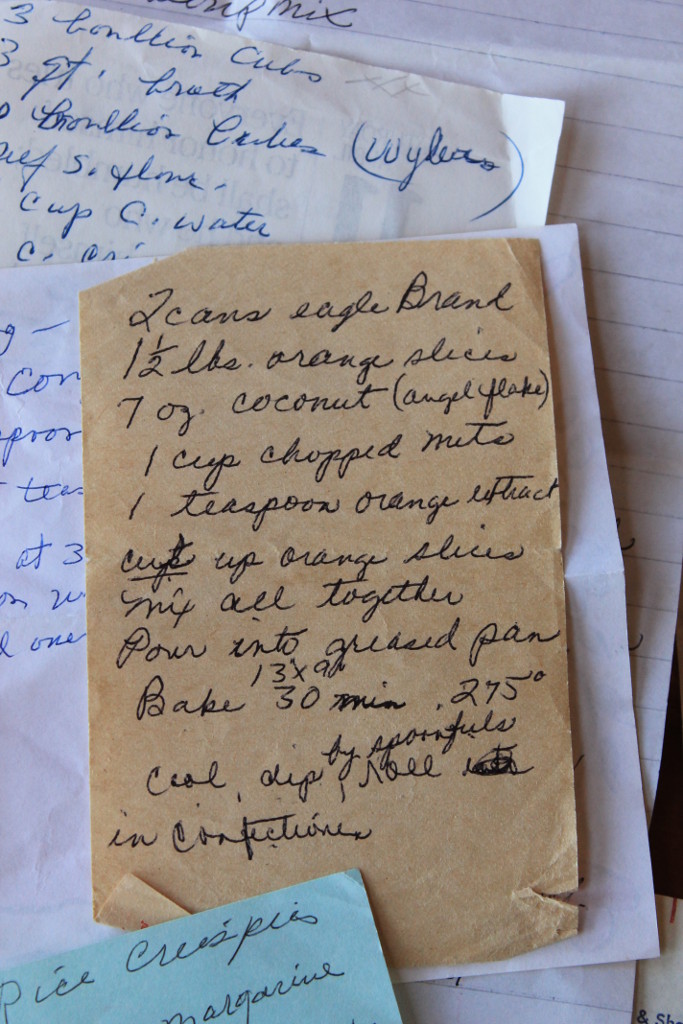 3 bouillion Cubs
gt. broth
bouillion Cubes (Wylers)
S. flour.
cup C. water
2 cans eagle Brand
1½ lbs. orange slices
7 oz. coconut (angel flake)
1 cup chopped nuts
1 teaspoon orange extract
cut up orange slices
mix all together
Pour into greased pan
13x9"
Bake 30 min. 275°
by spoonfuls
Cool, dip, roll
in Confectioner
Con
at 3
one
Rice Crispies
margarine
& Sh